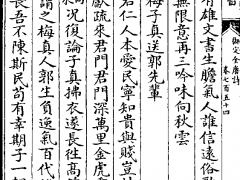 御定全唐詩 卷七百五十四
有雄文書生膽氣人誰信遠俗歌
無限意再三吟味向秋雲
梅子真送郭先輩
君仁人本愛民寧知貴與賤豈
獻疏來君門君門深萬里金虎
況復論子真拂衣遂長往高
謂之梅真人郭生負逸氣百代
長吾不陳斯民苟有幸期子一